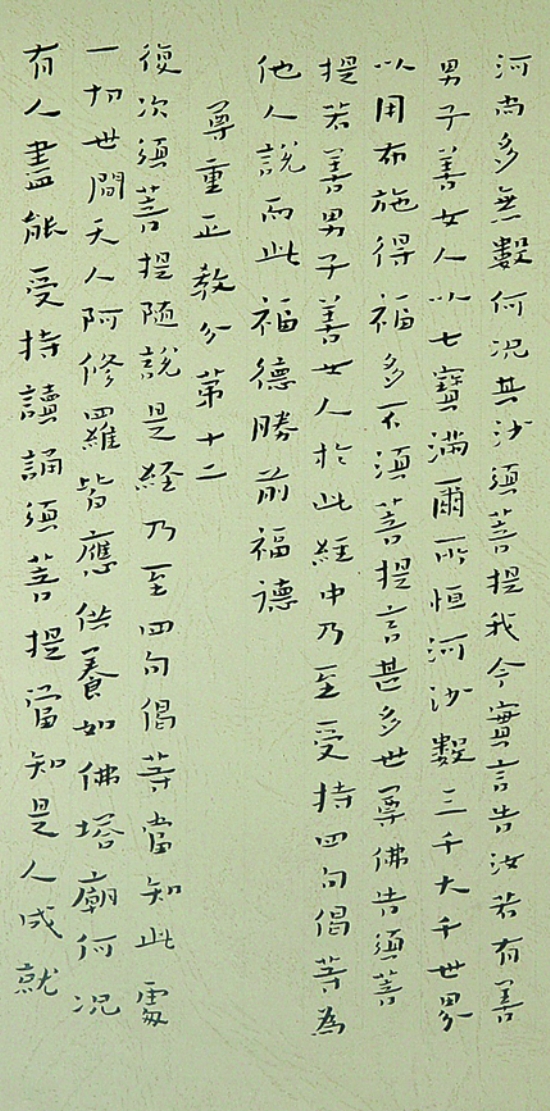 河尚多無數何況其沙須菩提我今實言告汝若有善
男子善女人以七寶滿爾所恒河沙數三千大千世界
以用布施得福多不須菩提言甚多世尊佛告須菩
提若善男子善女人於此経中乃至受持四句偈等為
他人說而此福德勝前福德
尊重正教分第十二
復次須菩提隨說是経乃至四句偈等當知此處
一切世間天人阿修羅皆應供養如佛塔廟何況
有人盡能受持讀誦須菩提當知是人成就